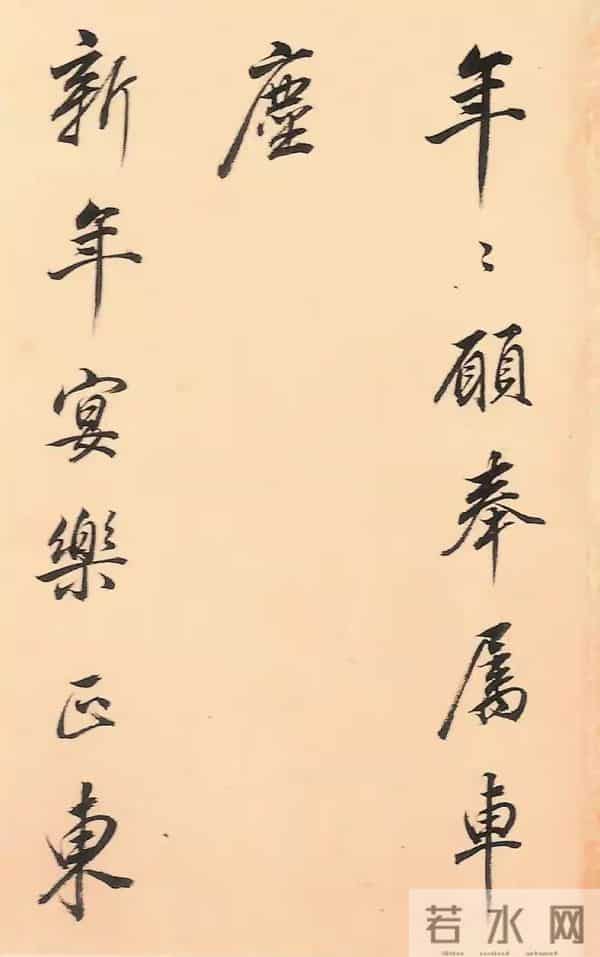 年〻願奉属車
塵
新年宴樂正東
若水网